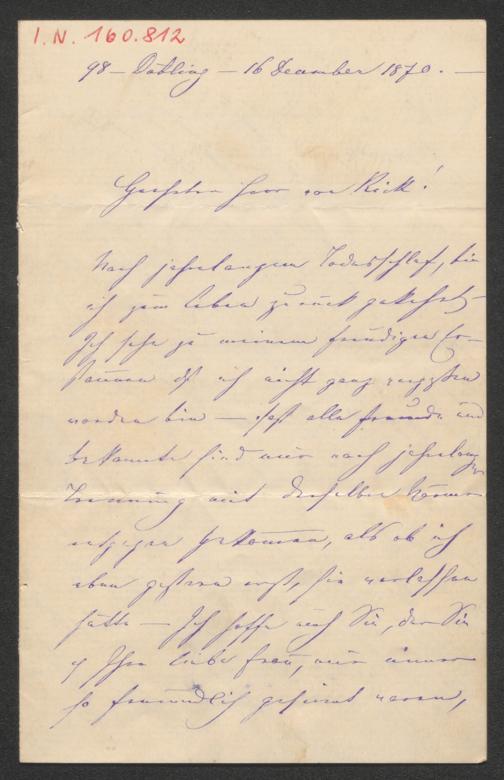 I.N. 160.812
98 – Döbling – 16 December 1870. –
Geehrter Herr von Kick!
Nach jahrelangem Todesschlaf, bin
ich zum Leben zurück gekehrt –
Ich sehe zu meinem freudigen Er-
staunen daß ich nicht ganz vergessen
worden bin – daß alle Freunde und
Bekannte sind mir nach jahrelanger
Trennung mit derselben Wärme
entgegen gekommen, als ob ich
eben gestern erst, sie verlassen
hätte – Ich hoffe auch Sie, der Sie
u Ihre liebe Frau, mir immer
so freundlich gesinnt waren,